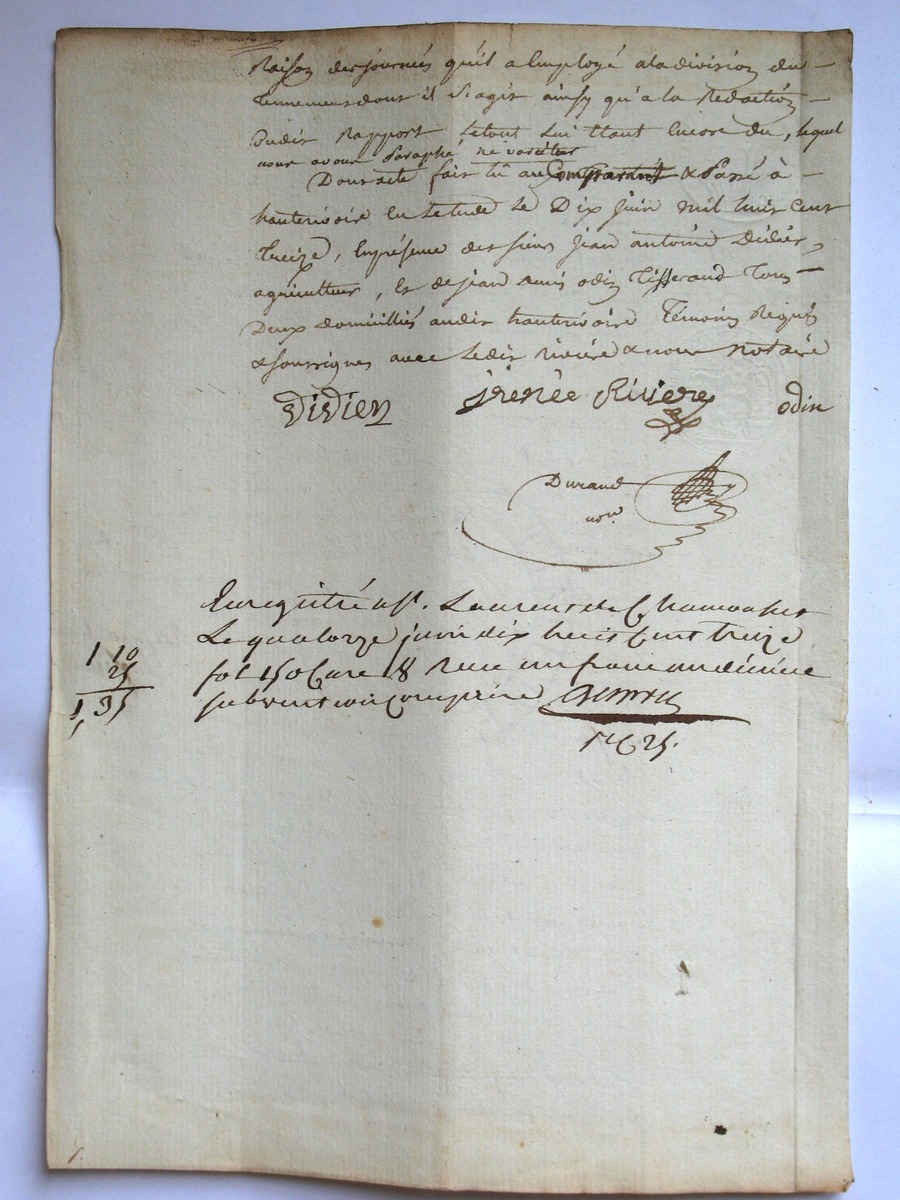 Raison des journées qu'il a Employé a la division du
tennement dont il s'agit ainsy qu'a la Redaction
dudit Rapport le tout lui étant Encore du, lequel
nous avons Paraphé ne varietur
Dont acte fait lû au Comparant & Passé à
hauterivoire En létude le Dix juin mil huit Cent
treize, En présence des sieurs jean antoine Didier,
agriculteur, Et de jean denis odin Tisserand Tous
Deux domiciliés audit hauterivoire Témoins Requis
& soussignés avec Ledit Riviere & nous Notaire
Didier irenée Riviere odin
Durand
nore
Enregistré a St. Laurent de Chamousset
Le quatorze juin dix huit Cent treize
fol 150 Case 8 Reçu un franc un décime
subvention Comprise
1 10
25
1, 35